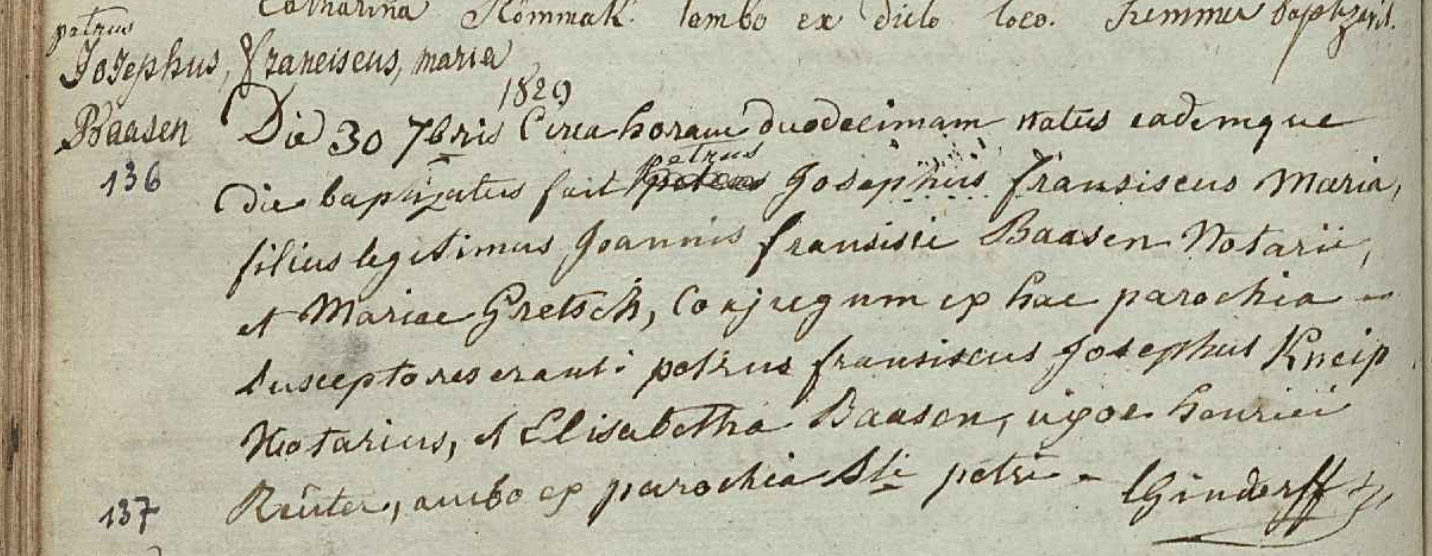 Catharina Kommak. lambo ex dicto loco. Kemmer baptizavit.
petrus
Josephus, franciscus, maria
Baasen
136
1829
Die 30 7bris Circa horam duodecimam natus eademque
petrus
die baptizatus fuit Josephus fransiscus Maria,
filius legitimus Joannis fransisci Baasen Notarii,
et Mariae Gretsch, Conjugum ex hac parochia -
susceptores erant: petrus fransiscus Josephus Kneip
Notarius, et Elisabetha Baasen, uxor henrici
Reüter, ambo ex parochia Sti petri - Ginderff
137